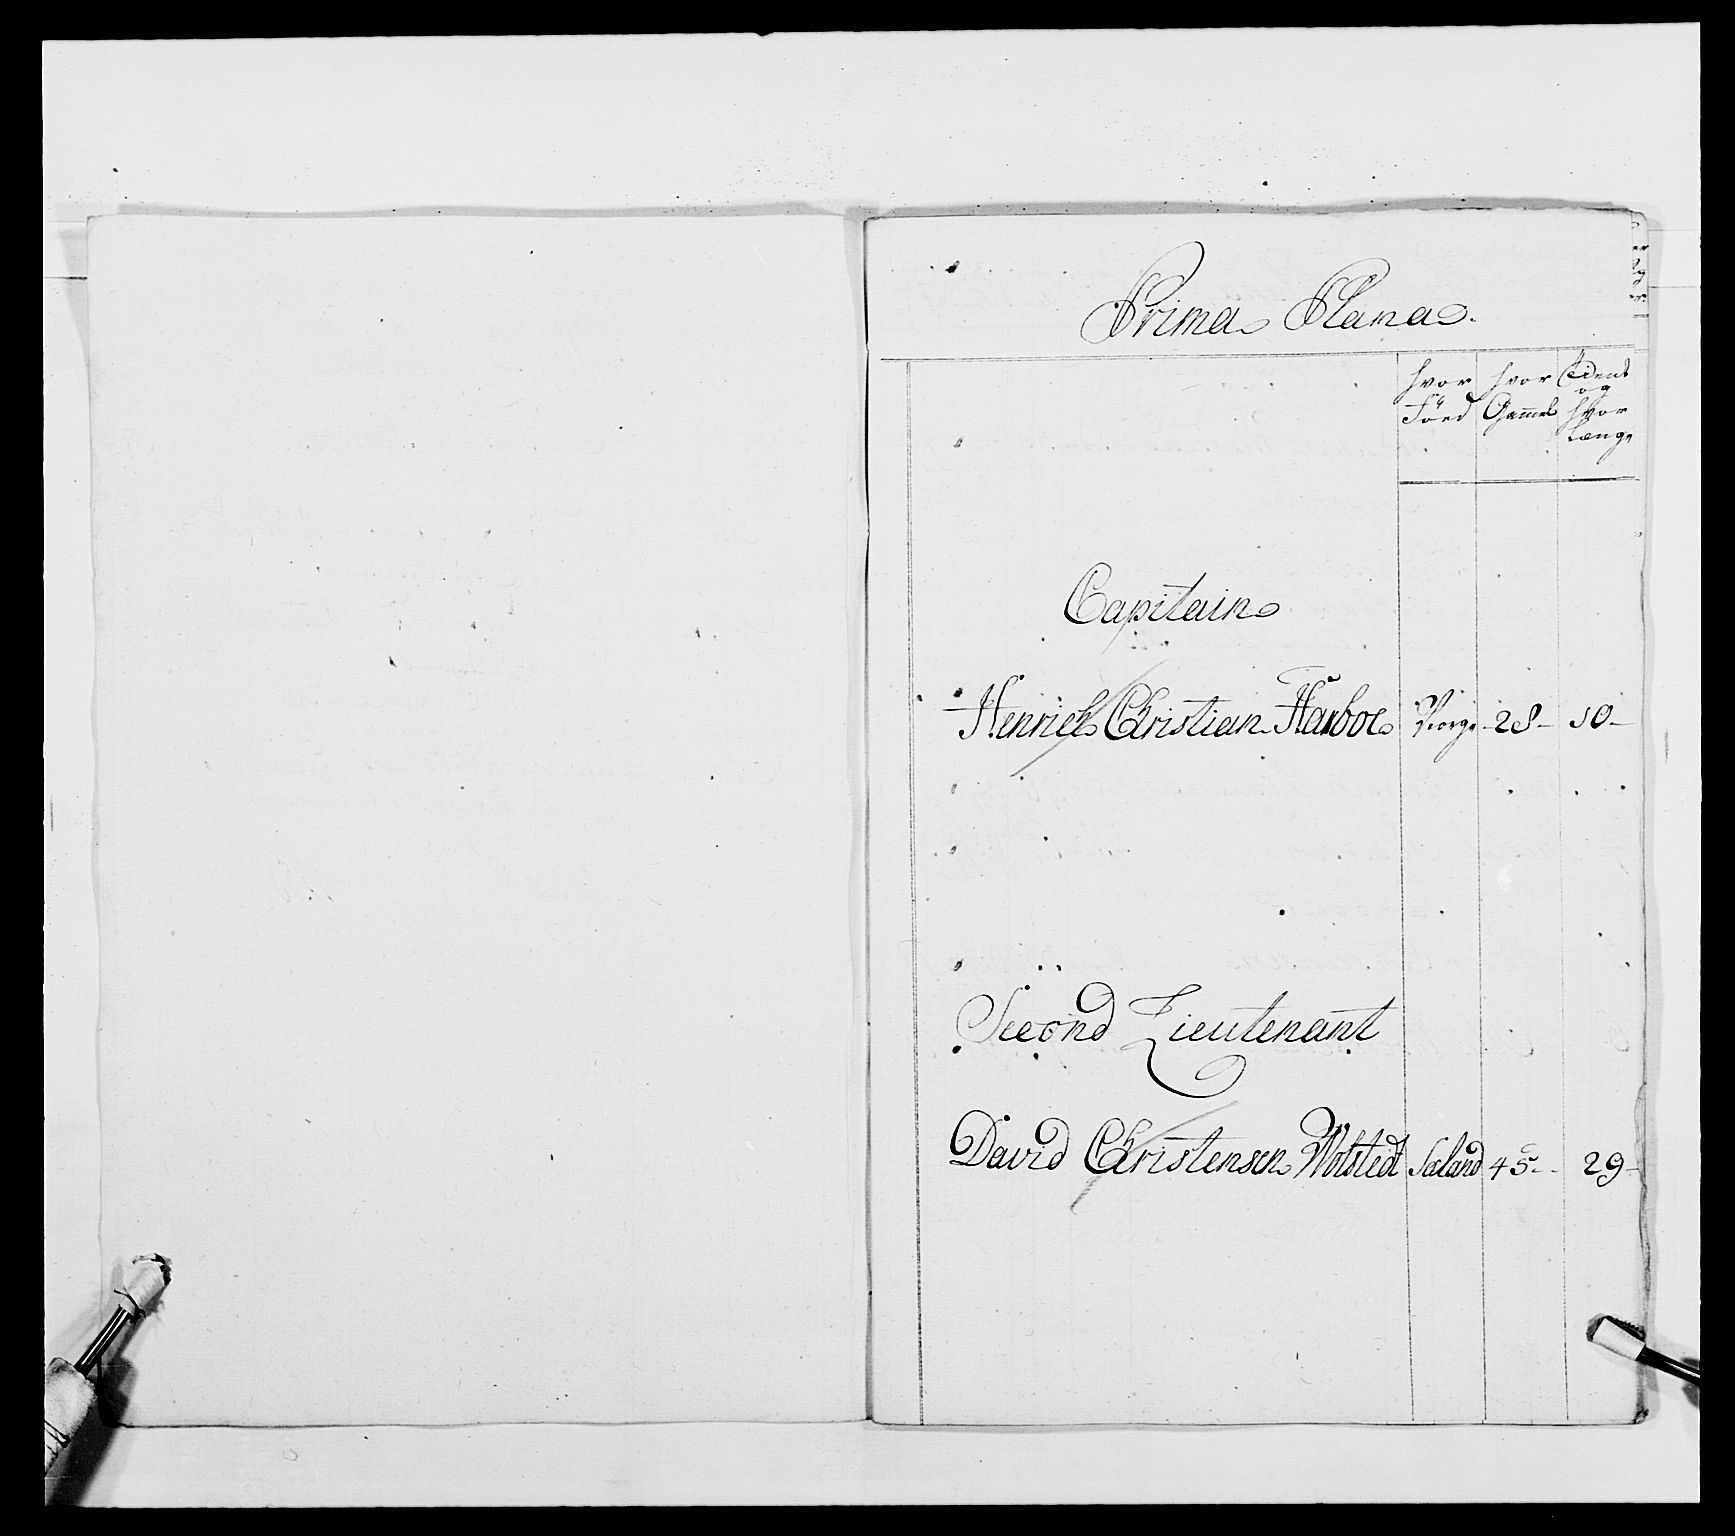 Prima Plana.
hvor Föed
hvor Gammel
Tient og hvor Længe
Capitain
Henrich Christian Harboe Norge 28 10
Second Lieutenant
David Christensen Wolstedt Sæland 45 29